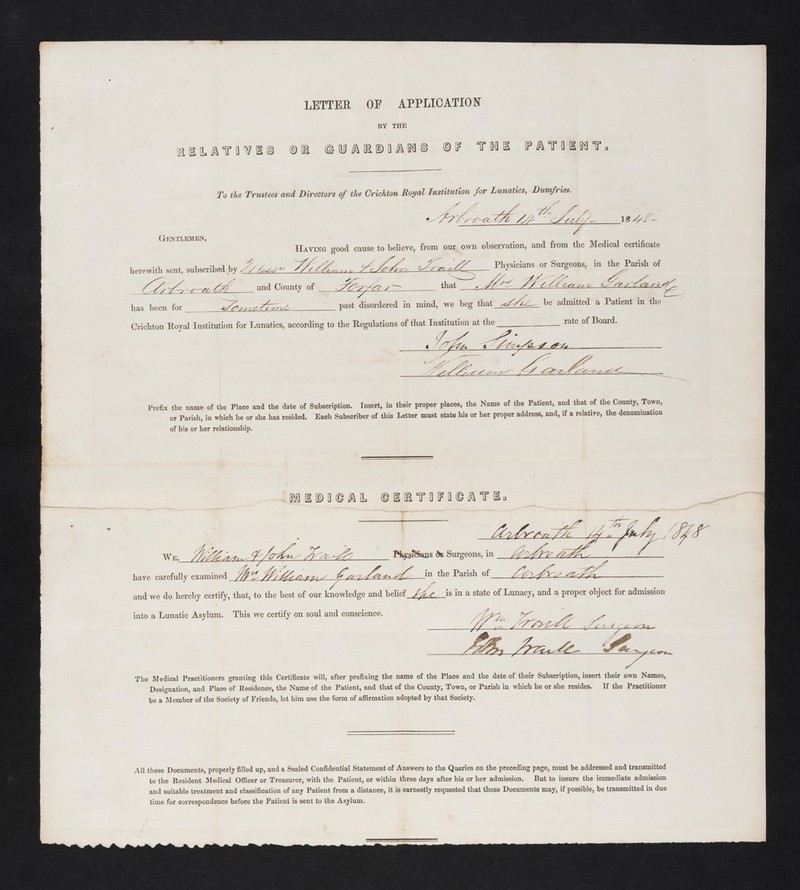 LETTER OF APPLICATION
BY THE
RELATIVES OR GUARDIANS OF THE PATIENT.
To the Trustees and Directors of the Crichton Royal Institution for Lunatics, Dumfries.
Arbroath 14th July 1848-
GENTLEMEN,
HAVING good cause to believe, from our own observation, and from the Medical certificate
herewith sent, subscribed by Messrs William & John Traill Physicians or Surgeons, in the Parish of
Arbroath and County of Forfar that Mrs William Garland
has been for Sometime past disordered in mind, we beg that she be admitted a Patient in the
Crichton Royal Institution for Lunatics, according to the Regulations of that Institution at the rate of Board.
John Simpson
William Garland
Prefix the name of the Place and the date of Subscription. Insert, in their proper places, the Name of the Patient, and that of the County, Town,
or Parish, in which he or she has resided. Each Subscriber of this Letter must state his or her proper address, and, if a relative, the denomination
of his or her relationship.
MEDICAL CERTIFICATE.
Arbroath 14th July 1848
WE, William & John Traill Physicians or Surgeons, in Arbroath
have carefully examined Mrs William Garland in the Parish of Arbroath
and we do hereby certify, that, to the best of our knowledge and belief she is in a state of Lunacy, and a proper object for admission
into a Lunatic Asylum. This we certify on soul and conscience.
Wm Traill Surgeon
John Traill Surgeon
The Medical Practitioners granting this Certificate will, after prefixing the name of the Place and the date of their Subscription, insert their own Names,
Designation, and Place of Residence, the Name of the Patient, and that of the County, Town, or Parish in which he or she resides. If the Practitioner
be a Member of the Society of Friends, let him use the form of affirmation adopted by that Society.
All these Documents, properly filled up, and a Sealed Confidential Statement of Answers to the Queries on the preceding page, must be addressed and transmitted
to the Resident Medical Officer or Treasurer, with the Patient, or within three days after his or her admission. But to insure the immediate admission
and suitable treatment and classification of any Patient from a distance, it is earnestly requested that these Documents may, if possible, be transmitted in due
time for correspondence before the Patient is sent to the Asylum.